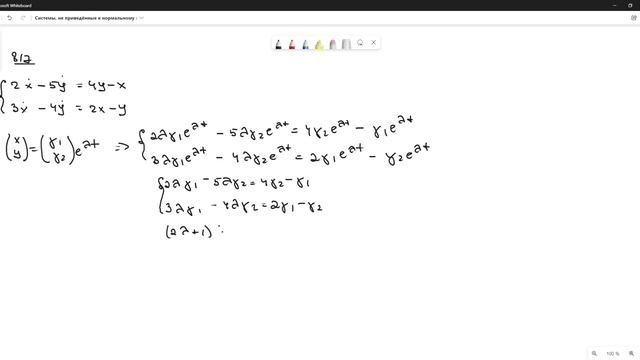 Microsoft Whiteboard
Системы, не приведённые к нормальному
817
{ 2ẋ − 5ẏ = 4y − x
3ẋ − 4ẏ = 2x − y
(x y) = (γ₁ γ₂) e^λt ⇒ { 2λγ₁e^λt − 5λγ₂e^λt = 4γ₂e^λt − γ₁e^λt
3λγ₁e^λt − 4λγ₂e^λt = 2γ₁e^λt − γ₂e^λt
{ 2λγ₁ − 5λγ₂ = 4γ₂ − γ₁
3λγ₁ − 4λγ₂ = 2γ₁ − γ₂
(2λ+1)
100 %